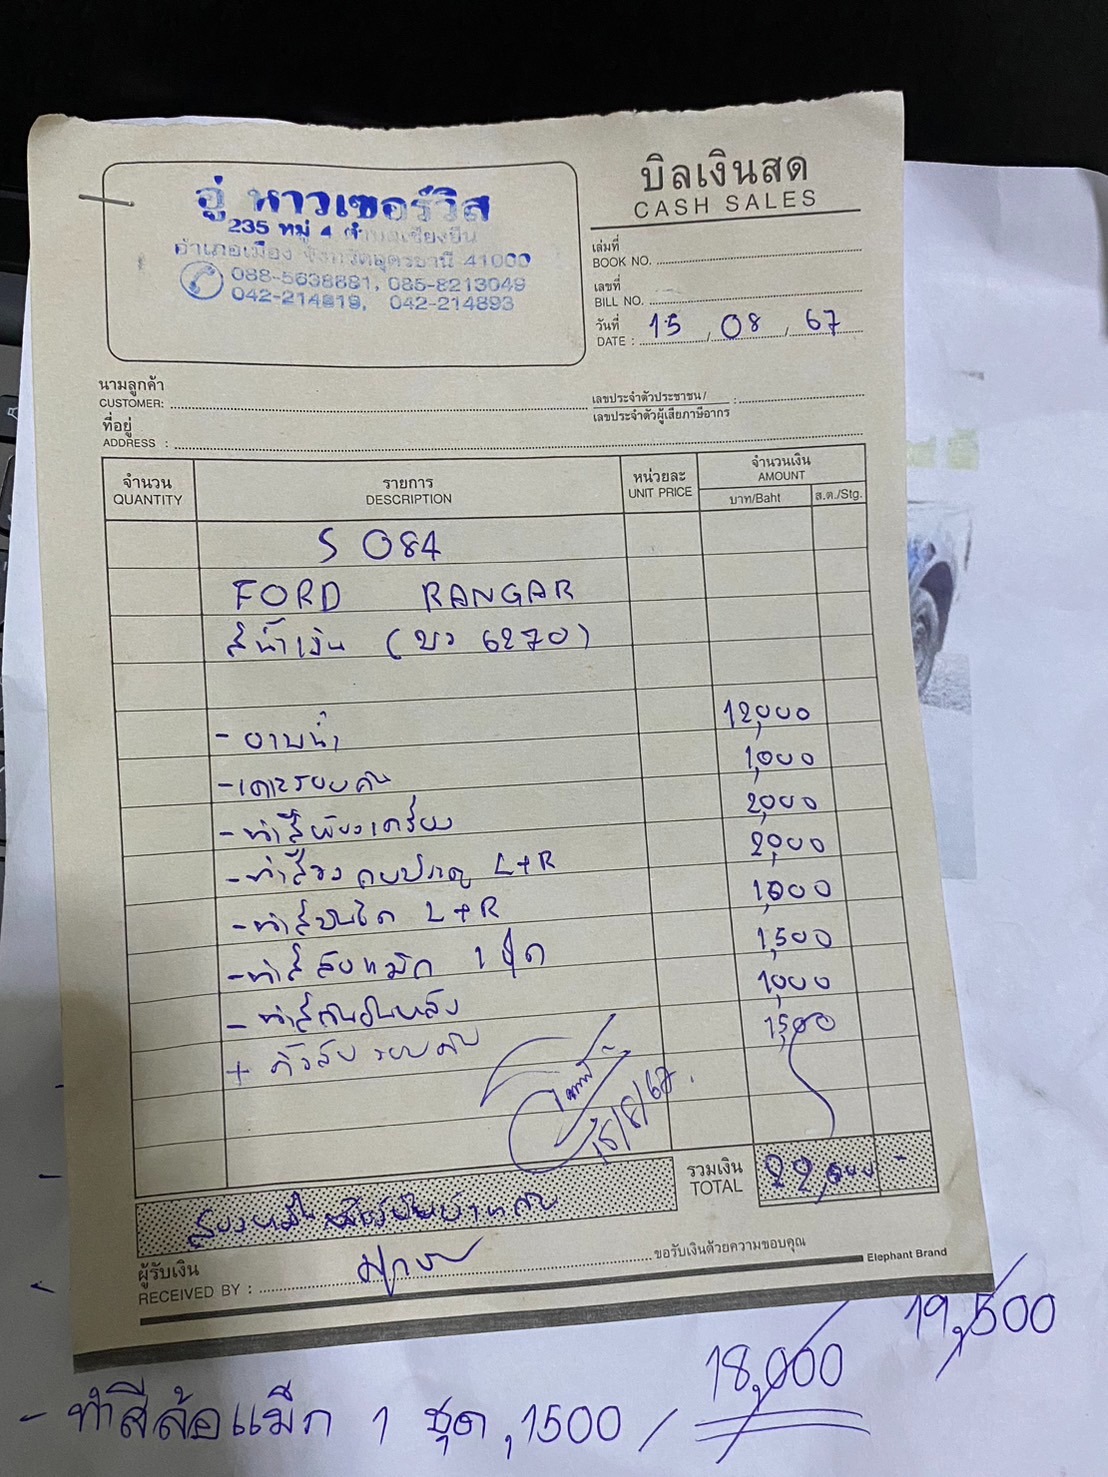 อู่ หาวเซอร์วิส
235 หมู่ 4 ตำบลเชียงยืน
อำเภอเมือง จังหวัดอุดรธานี 41000
088-5638891, 085-8213049
042-214819, 042-214893
บิลเงินสด
CASH SALES
เล่มที่
BOOK NO.
เลขที่
BILL NO.
วันที่
DATE : 15 / 08 / 67
นามลูกค้า
CUSTOMER:
เลขประจำตัวประชาชน/ :
เลขประจำตัวผู้เสียภาษีอากร
ที่อยู่
ADDRESS :
จำนวน รายการ หน่วยละ จำนวนเงิน
QUANTITY DESCRIPTION UNIT PRICE AMOUNT
บาท/Baht ส.ต./Stg.
S 084
FORD RANGAR
สีน้ำเงิน (บว 6270)
- อาบน้ำ 12,000
- เคาะรอบคัน 1,000
- ทำสีห้องเครื่อง 2,000
- ทำสีขอบประตู L+R 2,000
- ทำสีบันได L+R 1,000
- ทำสีล้อแม็ก 1 ชุด 1,500
- ทำสีกันชนหลัง 1,000
+ คิ้วล้อ รอบคัน 1,500
15/8/67
รวมเงิน
TOTAL 22,000 -
สองหมื่นสองพันบาทถ้วน
ผู้รับเงิน
RECEIVED BY :
ขอรับเงินด้วยความขอบคุณ
Elephant Brand
19,500
18,000
- ทำสีล้อแม็ก 1 ชุด, 1500 /